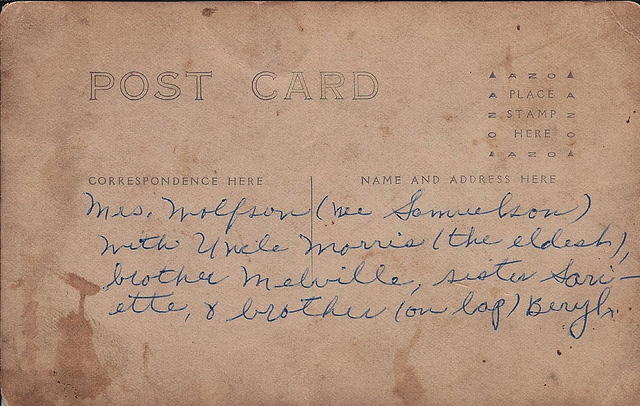 POST CARD
▲ A Z O ▲
A PLACE A
Z STAMP Z
O HERE O
▲ A Z O ▲
CORRESPONDENCE HERE
NAME AND ADDRESS HERE
Mrs. Wolfson (nee Samuelson)
with Uncle Morris (the eldest),
brother Melville, sister Sari-
ette, & brother (on lap) Beryl.